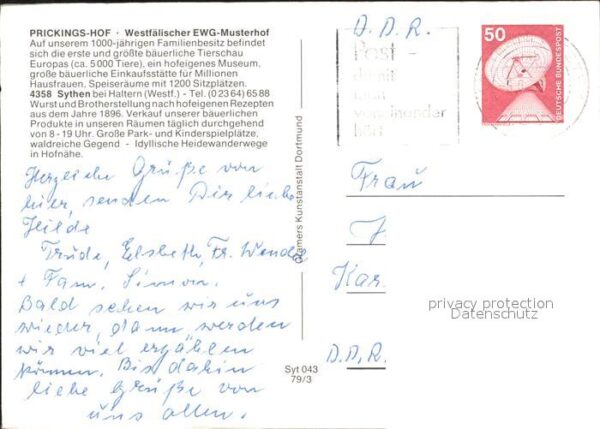 PRICKINGS-HOF · Westfälischer EWG-Musterhof
Auf unserem 1000-jährigen Familienbesitz befindet
sich die erste und größte bäuerliche Tierschau
Europas (ca. 5000 Tiere), ein hofeigenes Museum,
große bäuerliche Einkaufsstätte für Millionen
Hausfrauen, Speiseräume mit 1200 Sitzplätzen.
4358 Sythen bei Haltern (Westf.) - Tel. (0 23 64) 65 88
Wurst und Brotherstellung nach hofeigenen Rezepten
aus dem Jahre 1896. Verkauf unserer bäuerlichen
Produkte in unseren Räumen täglich durchgehend
von 8 - 19 Uhr. Große Park- und Kinderspielplätze,
waldreiche Gegend - Idyllische Heidewanderwege
in Hofnähe.
Herzliche Grüße von
hier, senden Dir liebe
Hilde
Trude, Elsbeth, Fr. Wende
+ Fam. Simon.
Bald sehen wir uns
wieder, dann werden
wir viel erzählen
können. Bis dahin
liebe Grüße von
uns allen.
Cramers Kunstanstalt Dortmund
Syt 043
79/3
D. D. R.
Post -
damit
man
voneinander
hört
50
DEUTSCHE BUNDESPOST
Frau
J.
Kar
D. D. R.
privacy protection
Datenschutz